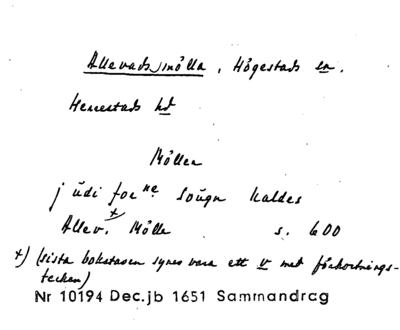 Allevadsmölla, Högestads sn.
Herrestads hd
Möllen
j ùdi forne Sougn kaldes
Allev. Mölle s. 600
+
+) (sista bokstaven synes vara ett v med förkortnings-
tecken)
Nr 10194 Dec.jb 1651 Sammandrag